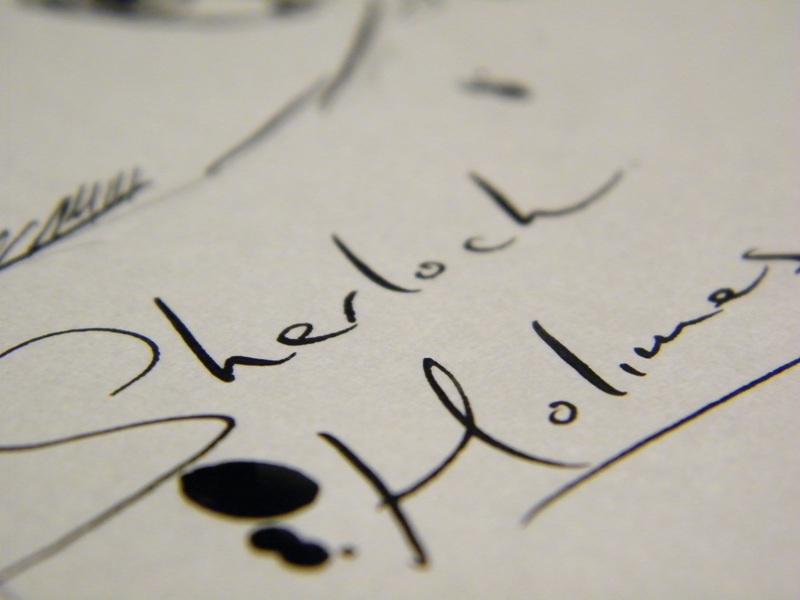 Sherlock
Holmes